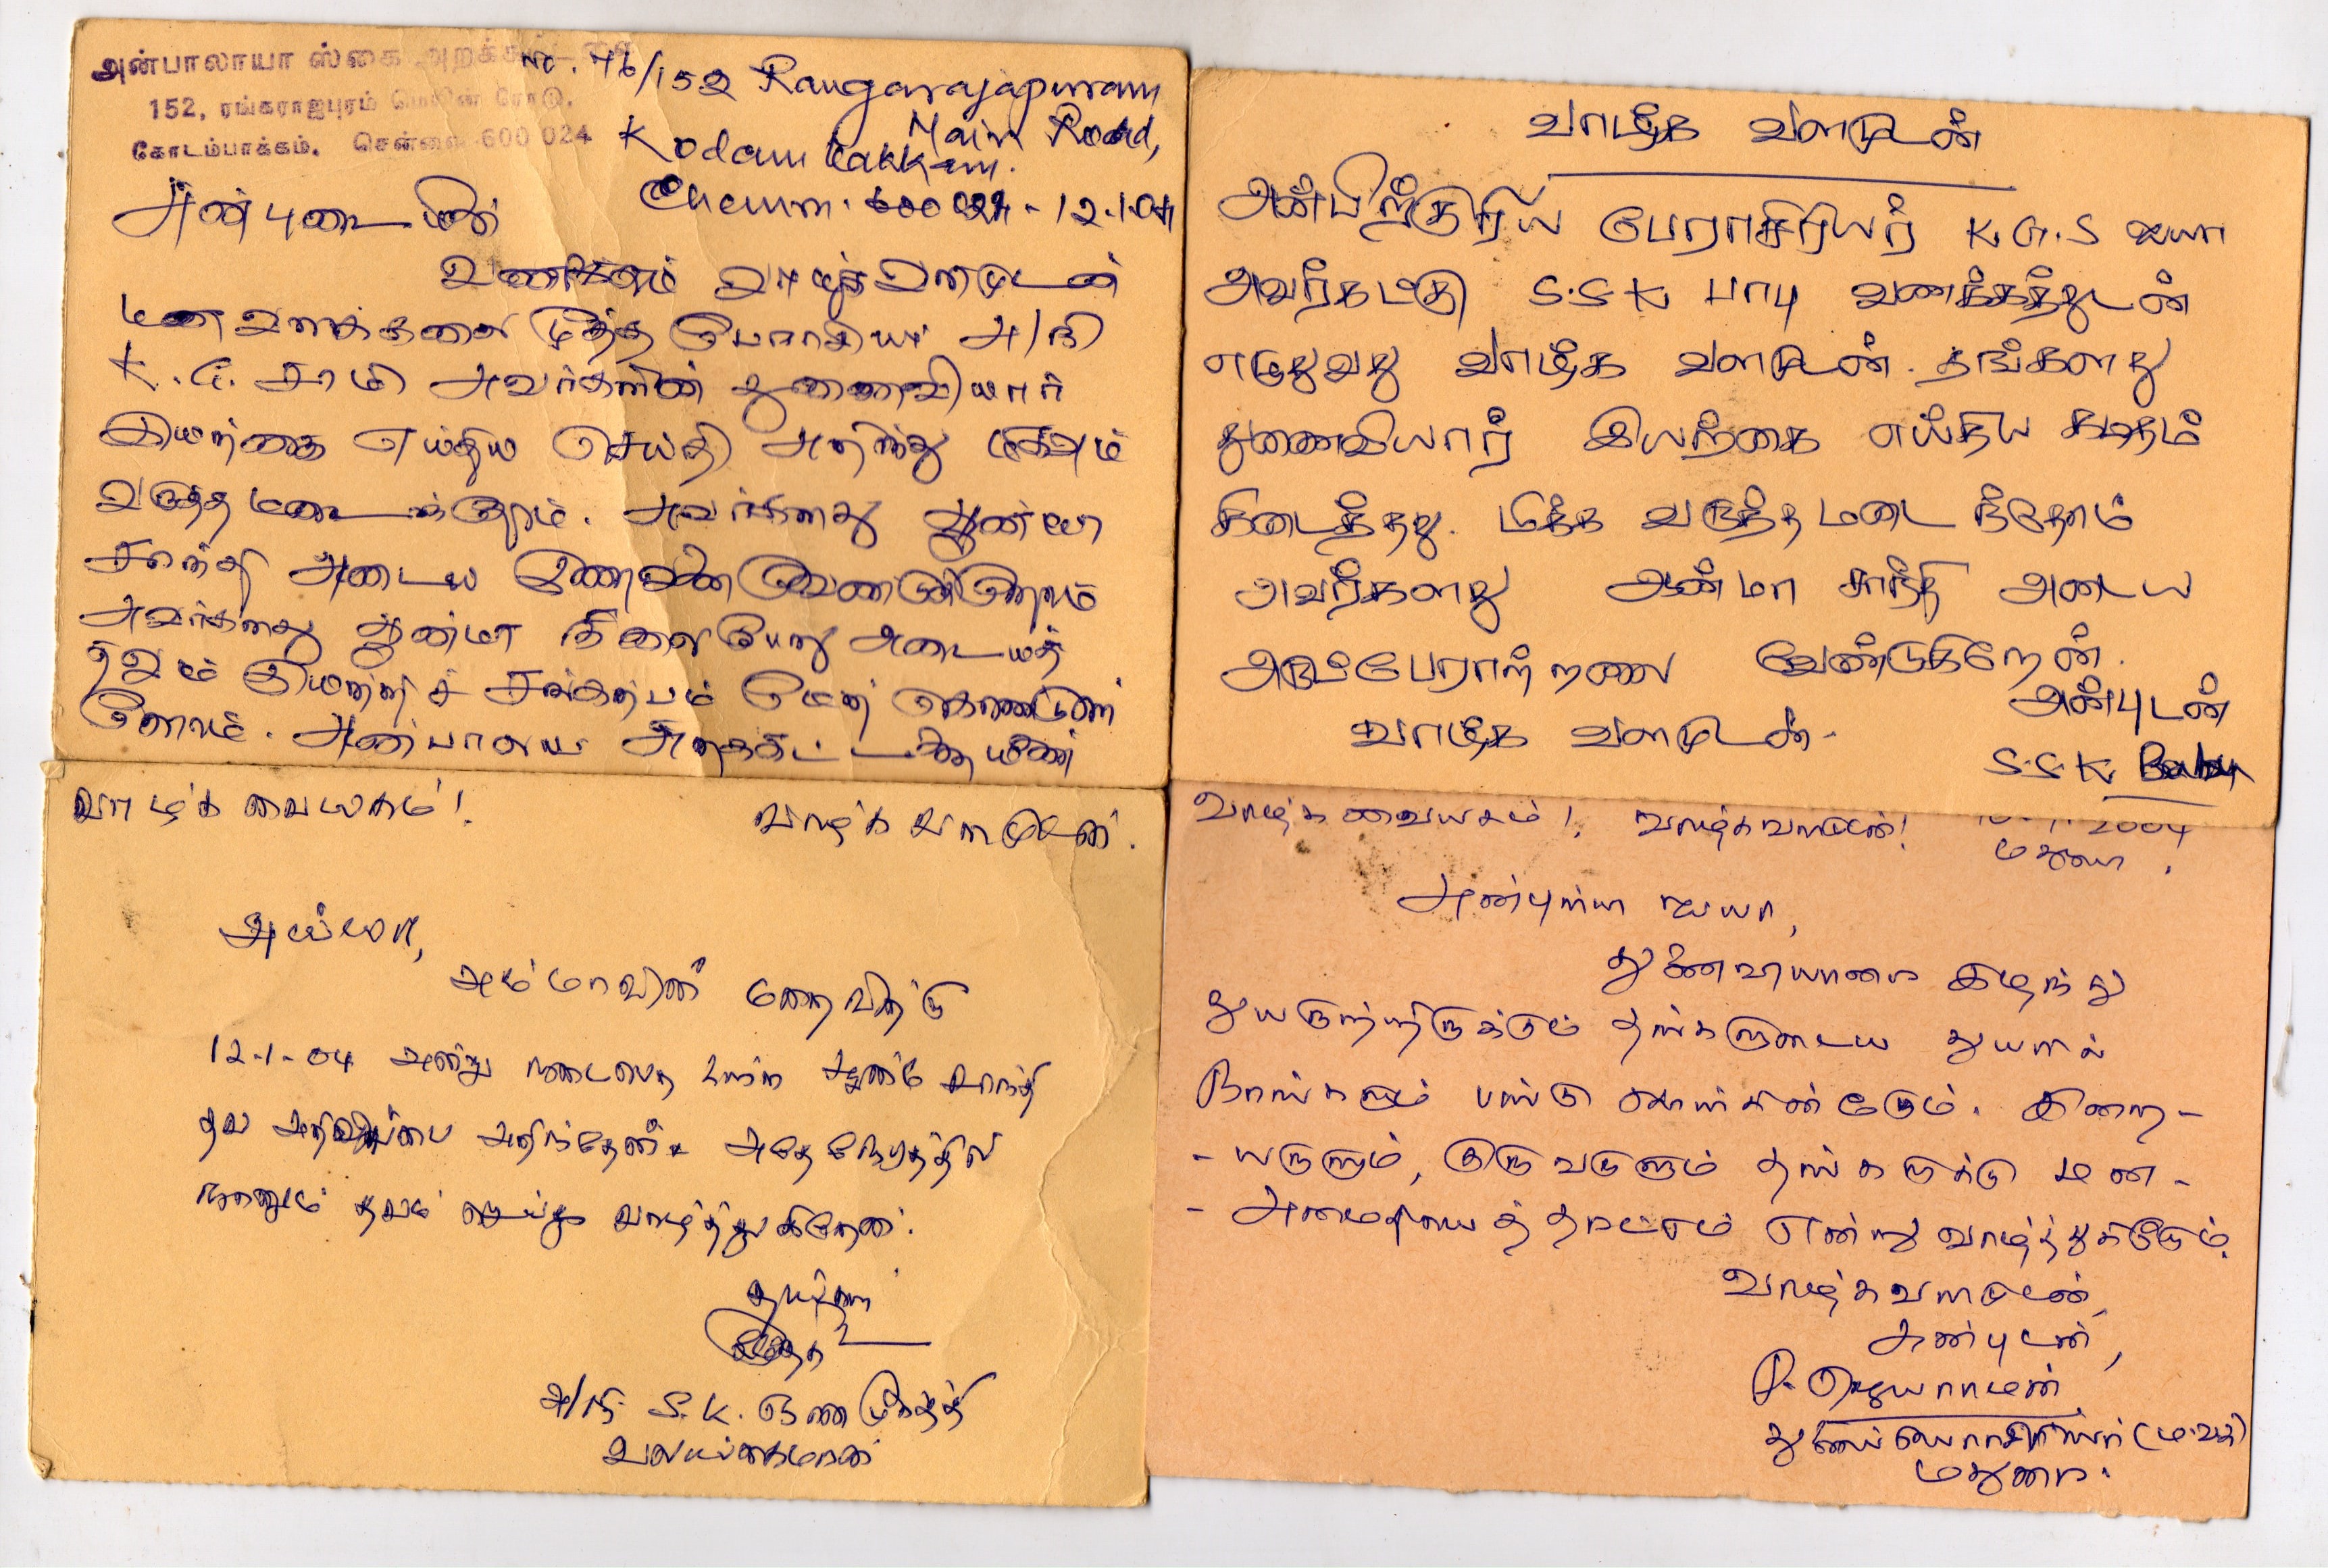 அன்பாலாயா ஸ்கை அறக்கட்டளை
152, ரங்கராஜபுரம் மெயின் ரோடு,
கோடம்பாக்கம், சென்னை 600 024
No. 46/152 Rangarajapuram
Main Road,
Kodambakkam.
Chennai. 600 024 - 12.1.04
அன்புடையீர்
வணக்கம் வாழ்க வளமுடன்
மனவளக்கலை மூத்த பேராசிரியர் அ/நி
K. G. சாமி அவர்களின் துணைவியார்
இயற்கை எய்திய செய்தி அறிந்து மிகவும்
வருத்தமடைந்தோம். அவர்களது ஆன்மா
சாந்தி அடைய இறைவனை வேண்டுகிறோம்
அவர்களது ஆன்மா நிலைபேறு அடையத்
தவம் இயற்றிச் சங்கற்பம் மேற் கொண்டுள்
ளோம். அன்பாலயா அறக்கட்டளையினர்
வாழ்க வளமுடன்
அன்பிற்குரிய பேராசிரியர் K.G.S ஐயா
அவர்கட்கு S.S.K பாபு வணக்கத்துடன்
எழுதுவது வாழ்க வளமுடன். தங்களது
துணைவியார் இயற்கை எய்திய கடிதம்
கிடைத்தது. மிக்க வருத்தமடைந்தோம்
அவர்களது ஆன்மா சாந்தி அடைய
அருட்பேராற்றலை வேண்டுகிறேன்.
வாழ்க வளமுடன்.
அன்புடன்
S.S.K. Babu
வாழ்க வையகம்! வாழ்க வளமுடன்.
அய்யா,
அம்மாவின் மறைவிற்கு
12-1-04 அன்று நடைபெற உள்ள ஆன்ம சாந்தி
தவ அறிவிப்பை அறிந்தேன். அதே நேரத்தில்
நானும் தவம் செய்து வாழ்த்துகிறேன்.
தங்கள்
அ/நி. S.K.
வலங்கைமான்
வாழ்க வையகம்!, வாழ்கவளமுடன்! 2004
மதுரை.
அன்புள்ள ஐயா,
துணைவியாரை இழந்து
துயருற்றிருக்கும் தங்களுடைய துயரில்
நாங்களும் பங்கு கொள்கின்றோம். இறை-
- யருளும், குருவருளும் தங்களுக்கு மன-
- அமைதியைத் தரட்டும் என்று வாழ்த்துகிறோம்.
வாழ்கவளமுடன்,
அன்புடன்,
P. ஜெயராமன்
துணைப் பேராசிரியர் (ம.வ.க)
மதுரை.